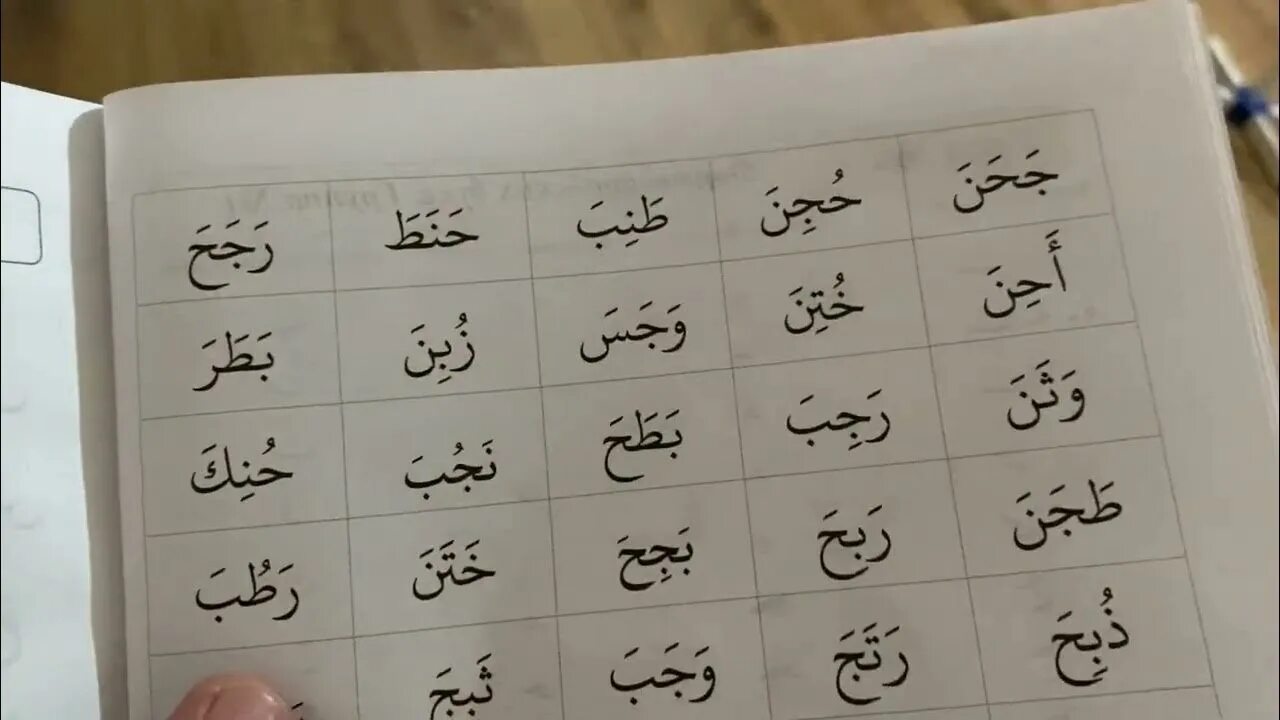 جَحَنَ حُجِنَ طَنِبَ حَنَطَ رَجَحَ
أَحِنَ خُتِنَ وَجَسَ زُبِنَ بَطَرَ
وَثَنَ رَجِبَ بَطَحَ نَجُبَ حُنِكَ
طَجَنَ رَبِحَ بَجِحَ خَتَنَ رَطُبَ
ذُبِحَ رَتَجَ وَجَبَ ثَبَجَ